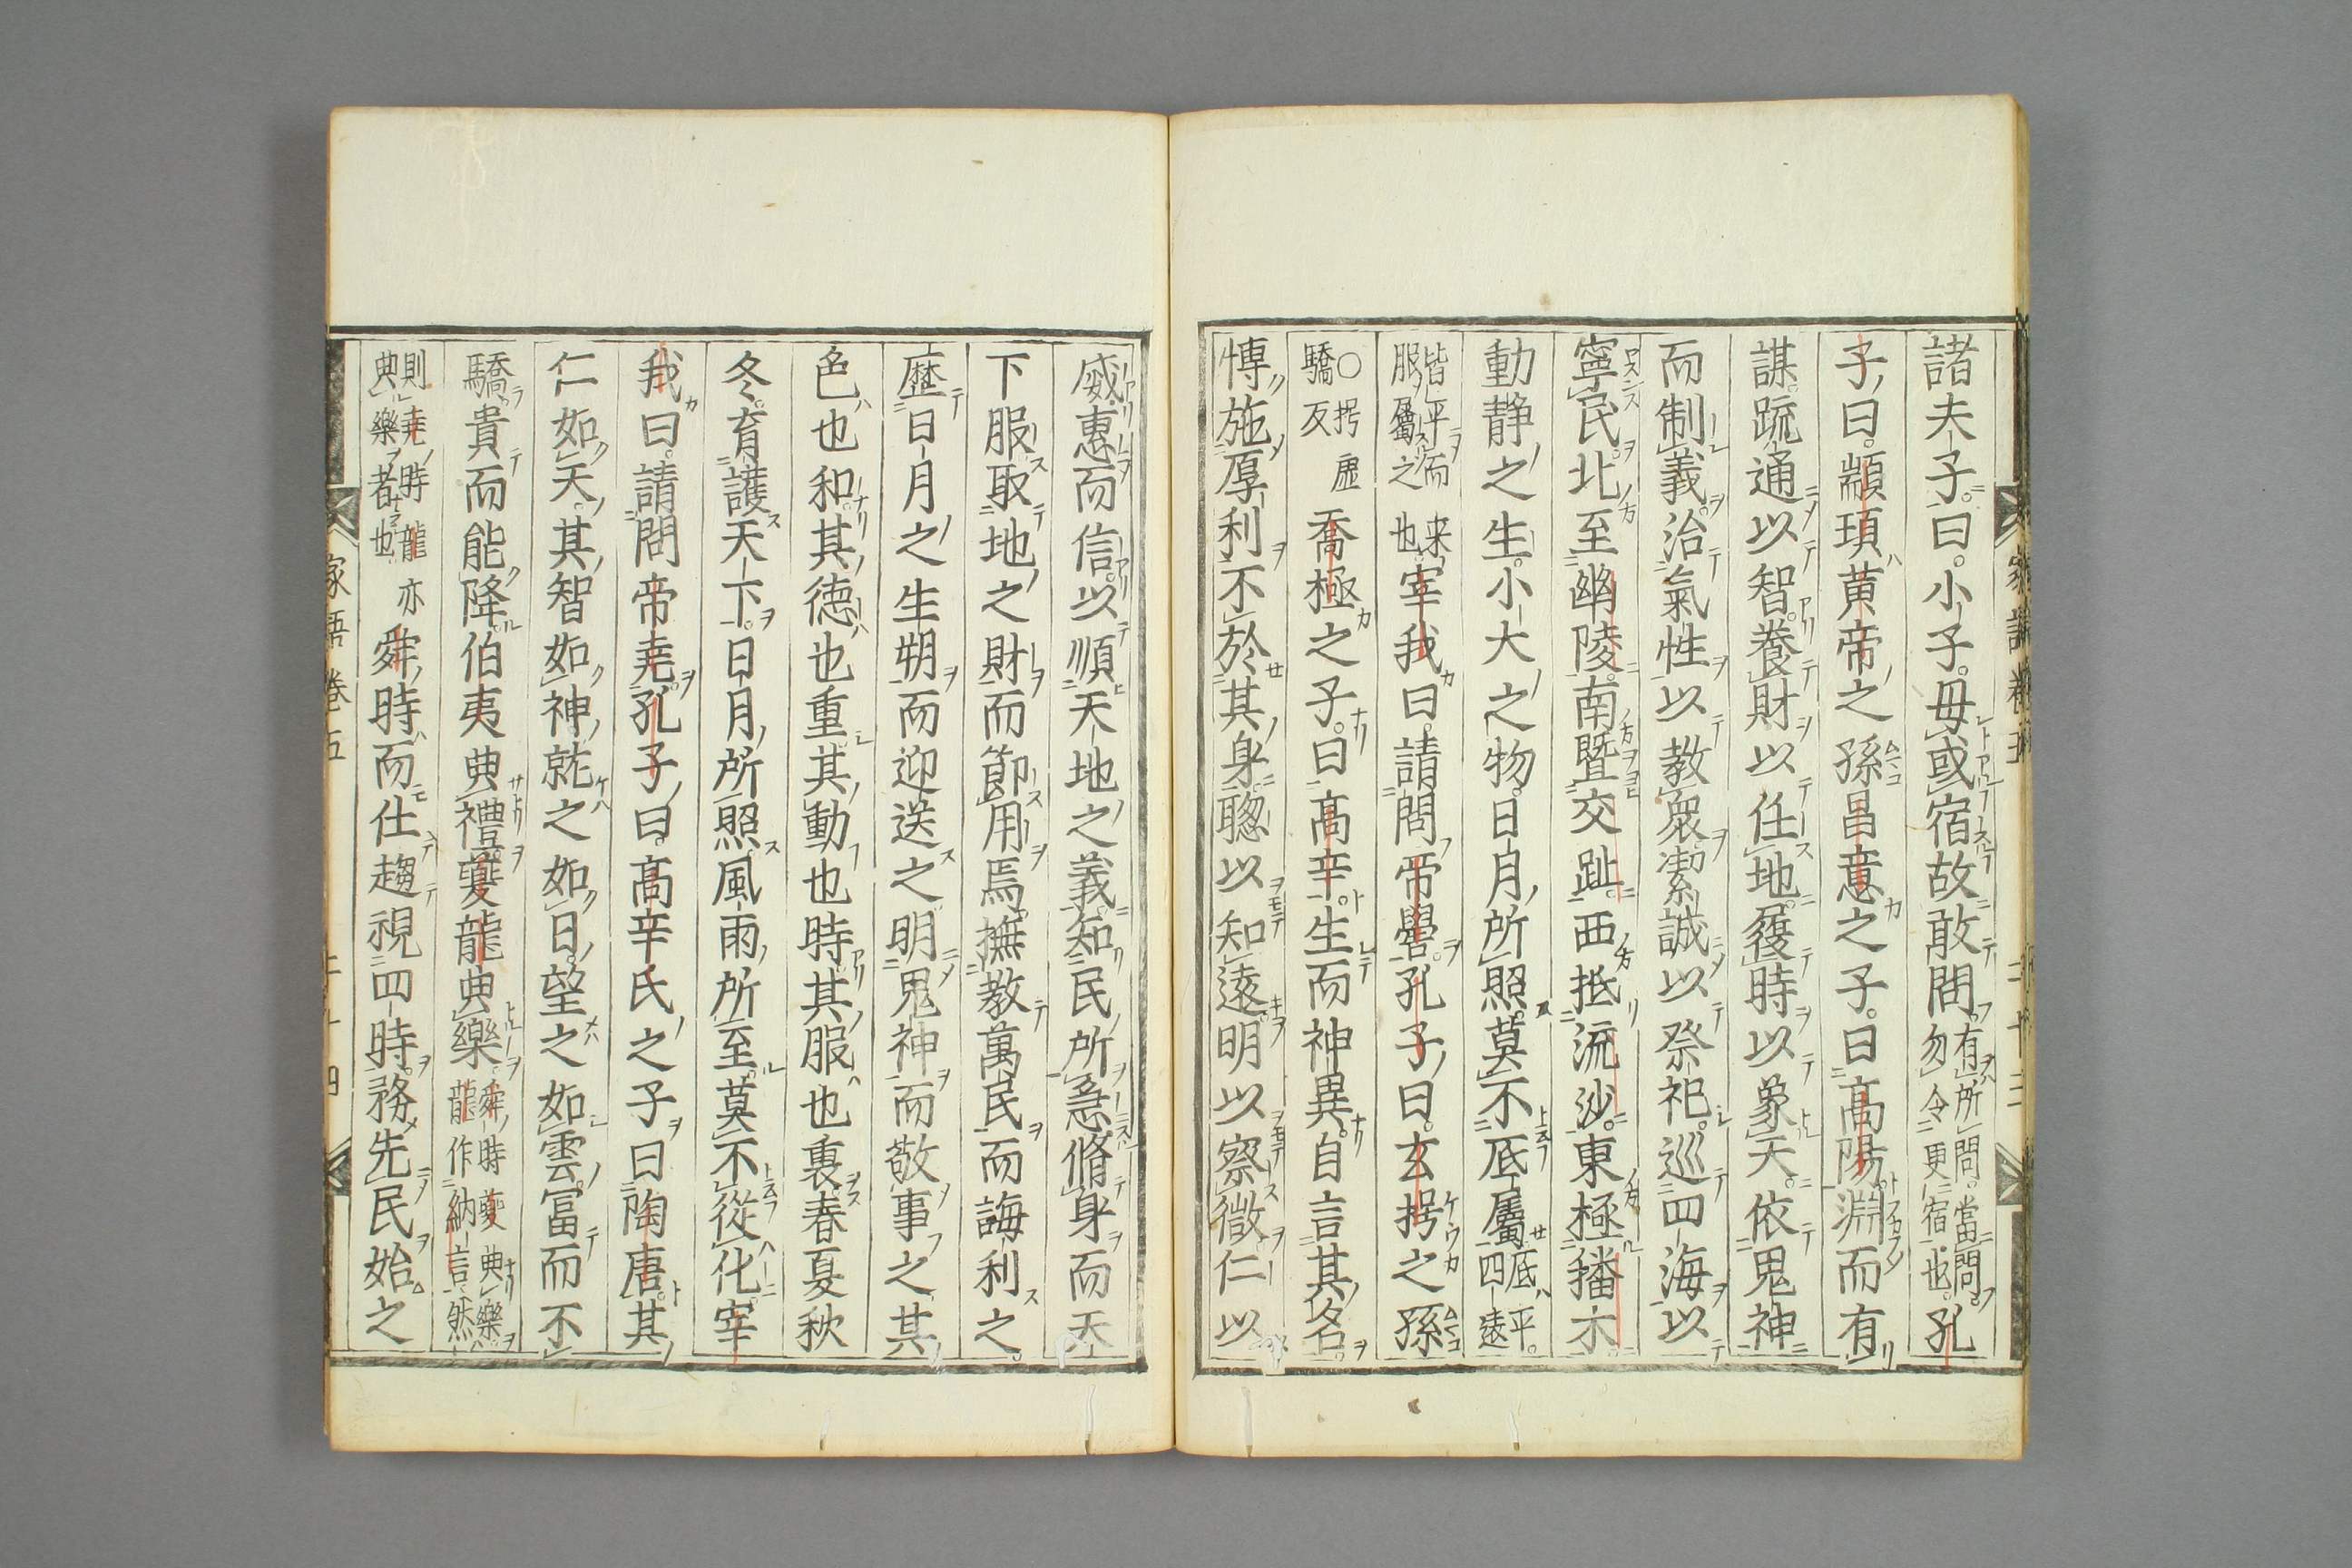 諸夫子。曰。小子。毋或宿故敢問。有所問。當問勿令更宿也。孔
子曰。顓頊黄帝之孫昌意之子。曰高陽。淵而有
謀。疏通以智。養財以任地。履時以象天。依鬼神
而制義。治氣性以教衆。潔誠以祭祀。巡四海以
寧民。北至幽陵。南曁交趾。西抵流沙。東極蟠木
動静之生。小大之物。日月所照。莫不底屬。底平。四遠
皆平而来服屬之也。宰我曰。請問帝嚳。孔子曰。玄枵之孫
○枵虚驕反喬極之子。曰高辛。生而神異。自言其名。
博施厚利。不於其身。聰以知遠。明以察微。仁以
威。惠而信。以順天地之義。知民所急。脩身而天
下服。取地之財而節用焉。撫教萬民而誨利之。
歴日月之生朔而迎送之。明鬼神而敬事之。其
色也和。其徳也重。其動也時。其服也裏。春夏秋
冬。育護天下。日月所照。風雨所至。莫不從化。宰
我曰。請問帝堯。孔子曰。高辛氏之子。曰陶唐。其
仁如天。其智如神。就之如日。望之如雲。冨而不
驕。貴而能降。伯夷典禮。夔龍典樂。舜時夔典樂龍作納言然
則堯時龍亦典樂者也。舜時而仕。趨視四時。務先民始之
家語巻五 二十三
家語巻五 二十四